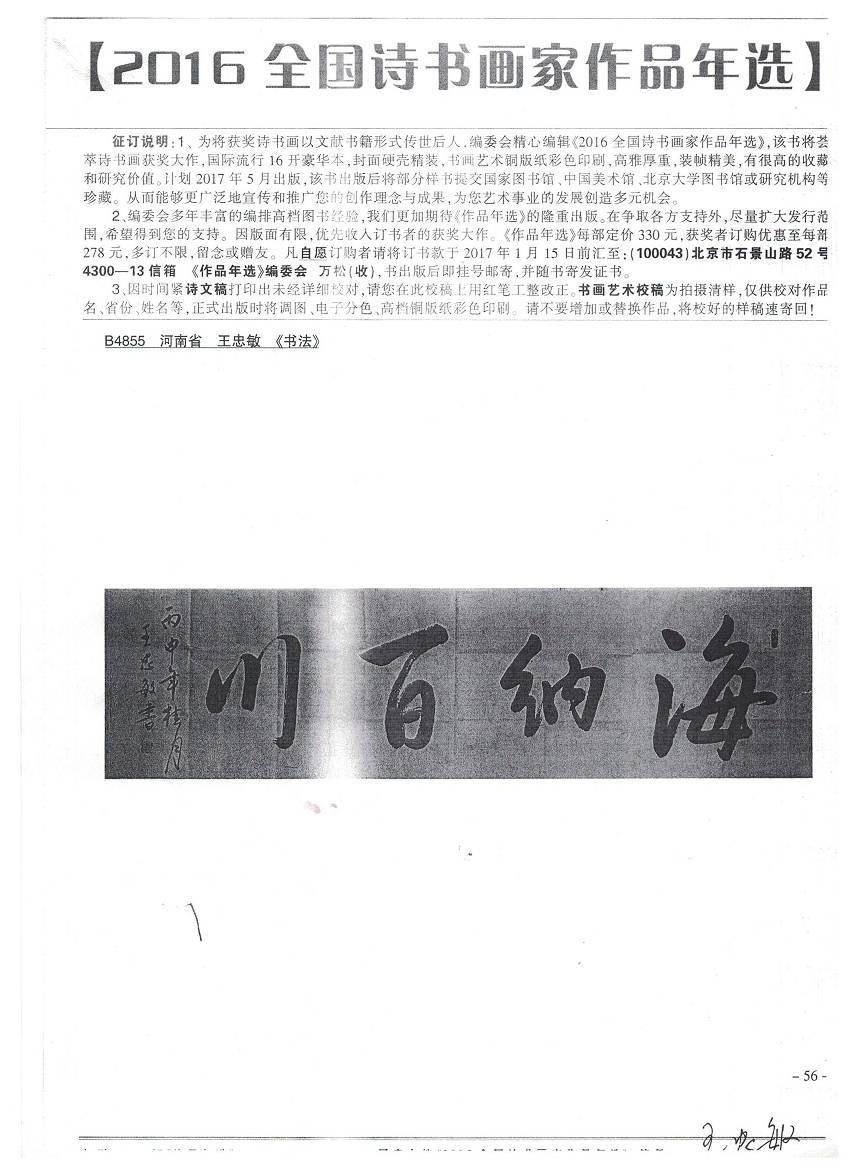 【2016 全国诗书画家作品年选】
征订说明:1、为将获奖诗书画以文献书籍形式传世后人,编委会精心编辑《2016 全国诗书画家作品年选》,该书将荟
萃诗书画获奖大作,国际流行 16 开豪华本,封面硬壳精装,书画艺术铜版纸彩色印刷,高雅厚重,装帧精美,有很高的收藏
和研究价值。计划 2017 年 5 月出版,该书出版后将部分样书提交国家图书馆、中国美术馆、北京大学图书馆或研究机构等
珍藏。从而能够更广泛地宣传和推广您的创作理念与成果,为您艺术事业的发展创造多元机会。
2、编委会多年丰富的编排高档图书经验,我们更加期待《作品年选》的隆重出版。在争取各方支持外,尽量扩大发行范
围,希望得到您的支持。因版面有限,优先收入订书者的获奖大作。《作品年选》每部定价 330 元,获奖者订购优惠至每部
278 元,多订不限,留念或赠友。凡自愿订购者请将订书款于 2017 年 1 月 15 日前汇至:(100043)北京市石景山路 52 号
4300—13 信箱 《作品年选》编委会 万松(收),书出版后即挂号邮寄,并随书寄发证书。
3、因时间紧诗文稿打印出未经详细校对,请您在此校稿上用红笔工整改正。书画艺术校稿为拍摄清样,仅供校对作品
名、省份、姓名等,正式出版时将调图、电子分色、高档铜版纸彩色印刷。请不要增加或替换作品,将校好的样稿速寄回!
B4855 河南省 王忠敏 《书法》
海纳百川
丙申年桂月
王忠敏书
- 56 -
王忠敏